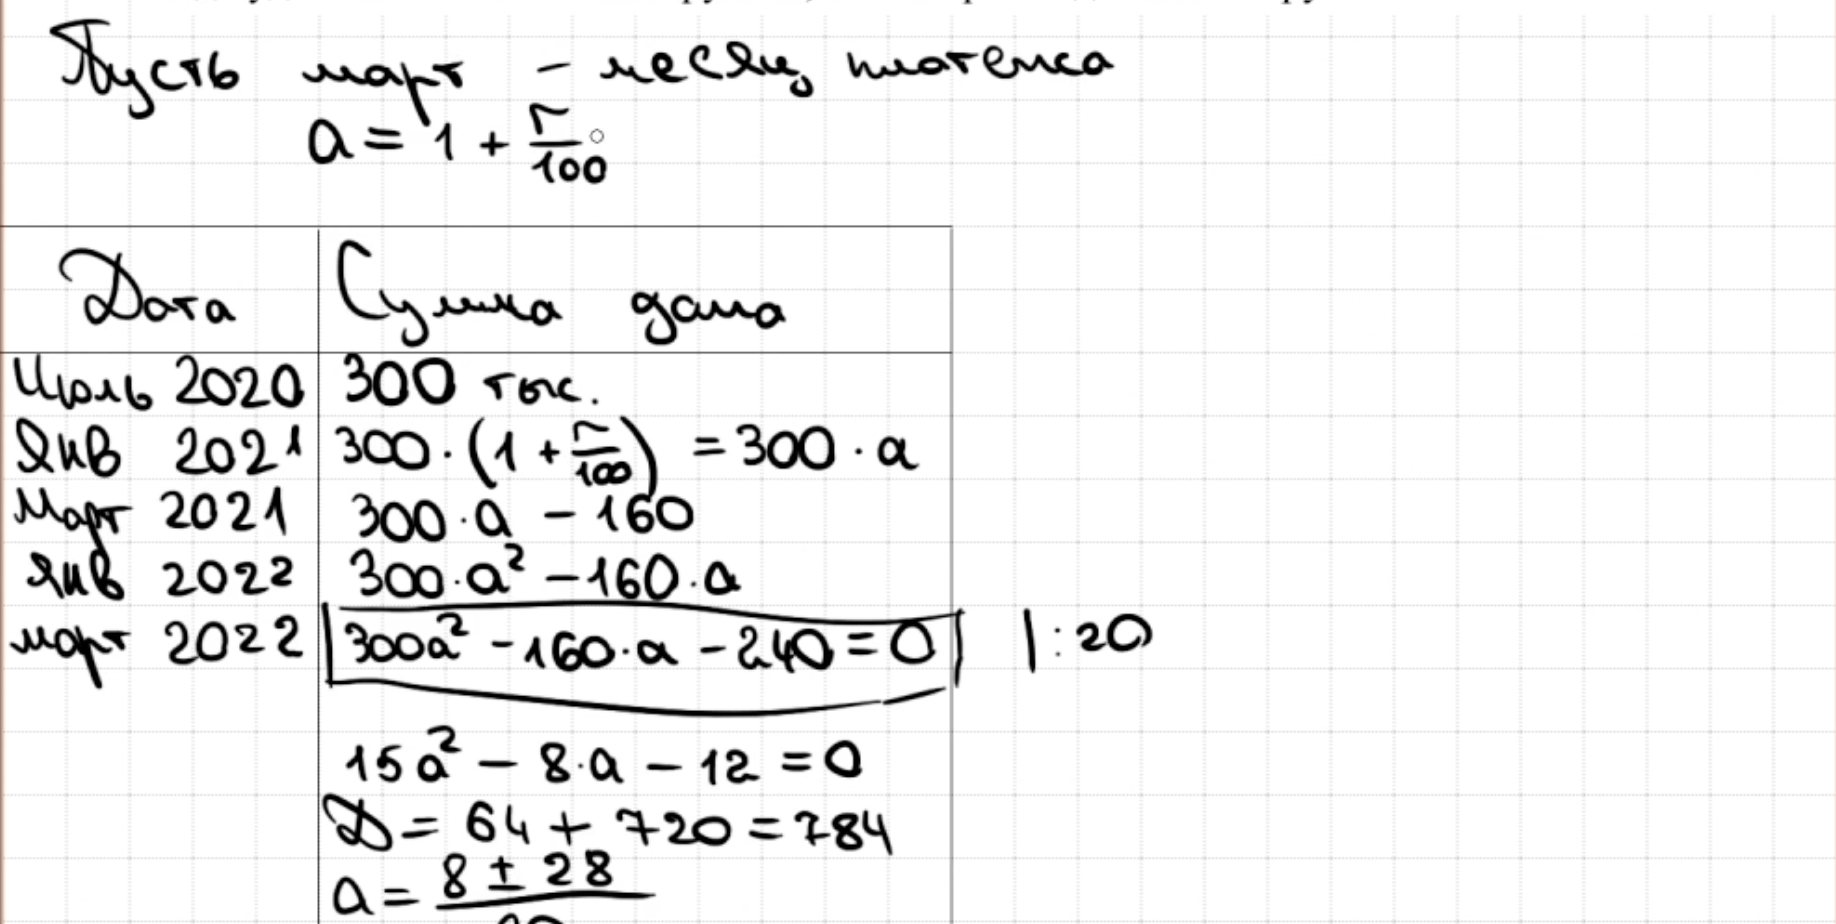 Пусть март - месяц платежа
a = 1 + r/100
Дата Сумма долга
Июль 2020 300 тыс.
Янв 2021 300·(1 + r/100) = 300·a
Март 2021 300·a - 160
Янв 2022 300·a² - 160·a
март 2022 300a² - 160·a - 240 = 0 |:20
15a² - 8·a - 12 = 0
D = 64 + 720 = 784
a = 8 ± 28